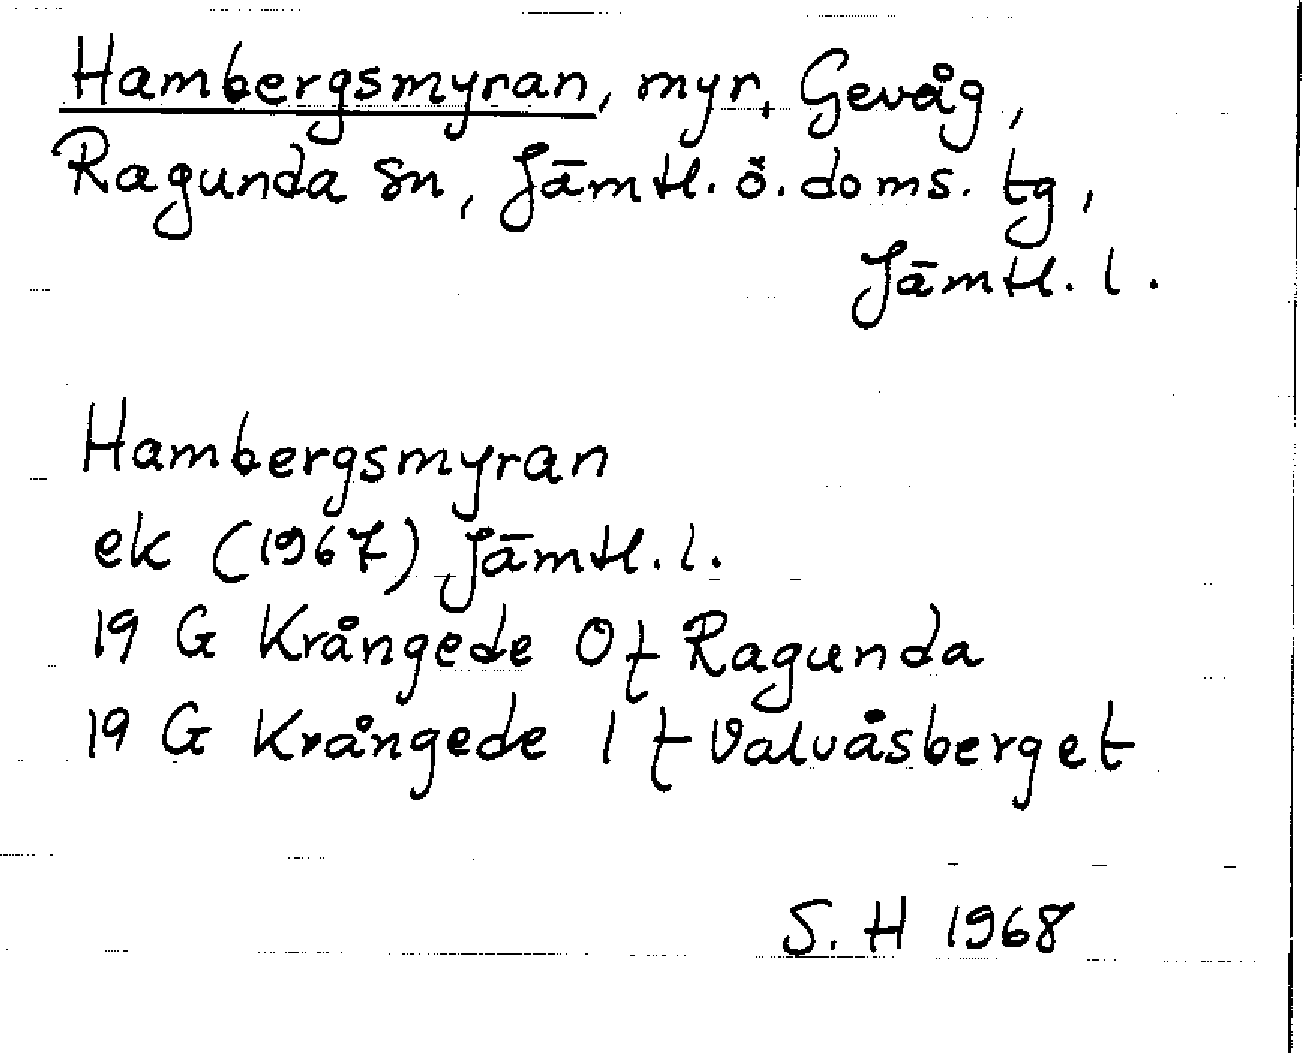 Hambergsmyran, myr, Gevåg,
Ragunda sn, Jämtl. ö. doms. tg,
Jämtl. l.
Hambergsmyran
ek (1967) Jämtl. l.
19 G Krångede 0 f Ragunda
19 G Krångede 1 f Valvåsberget
S. H 1968